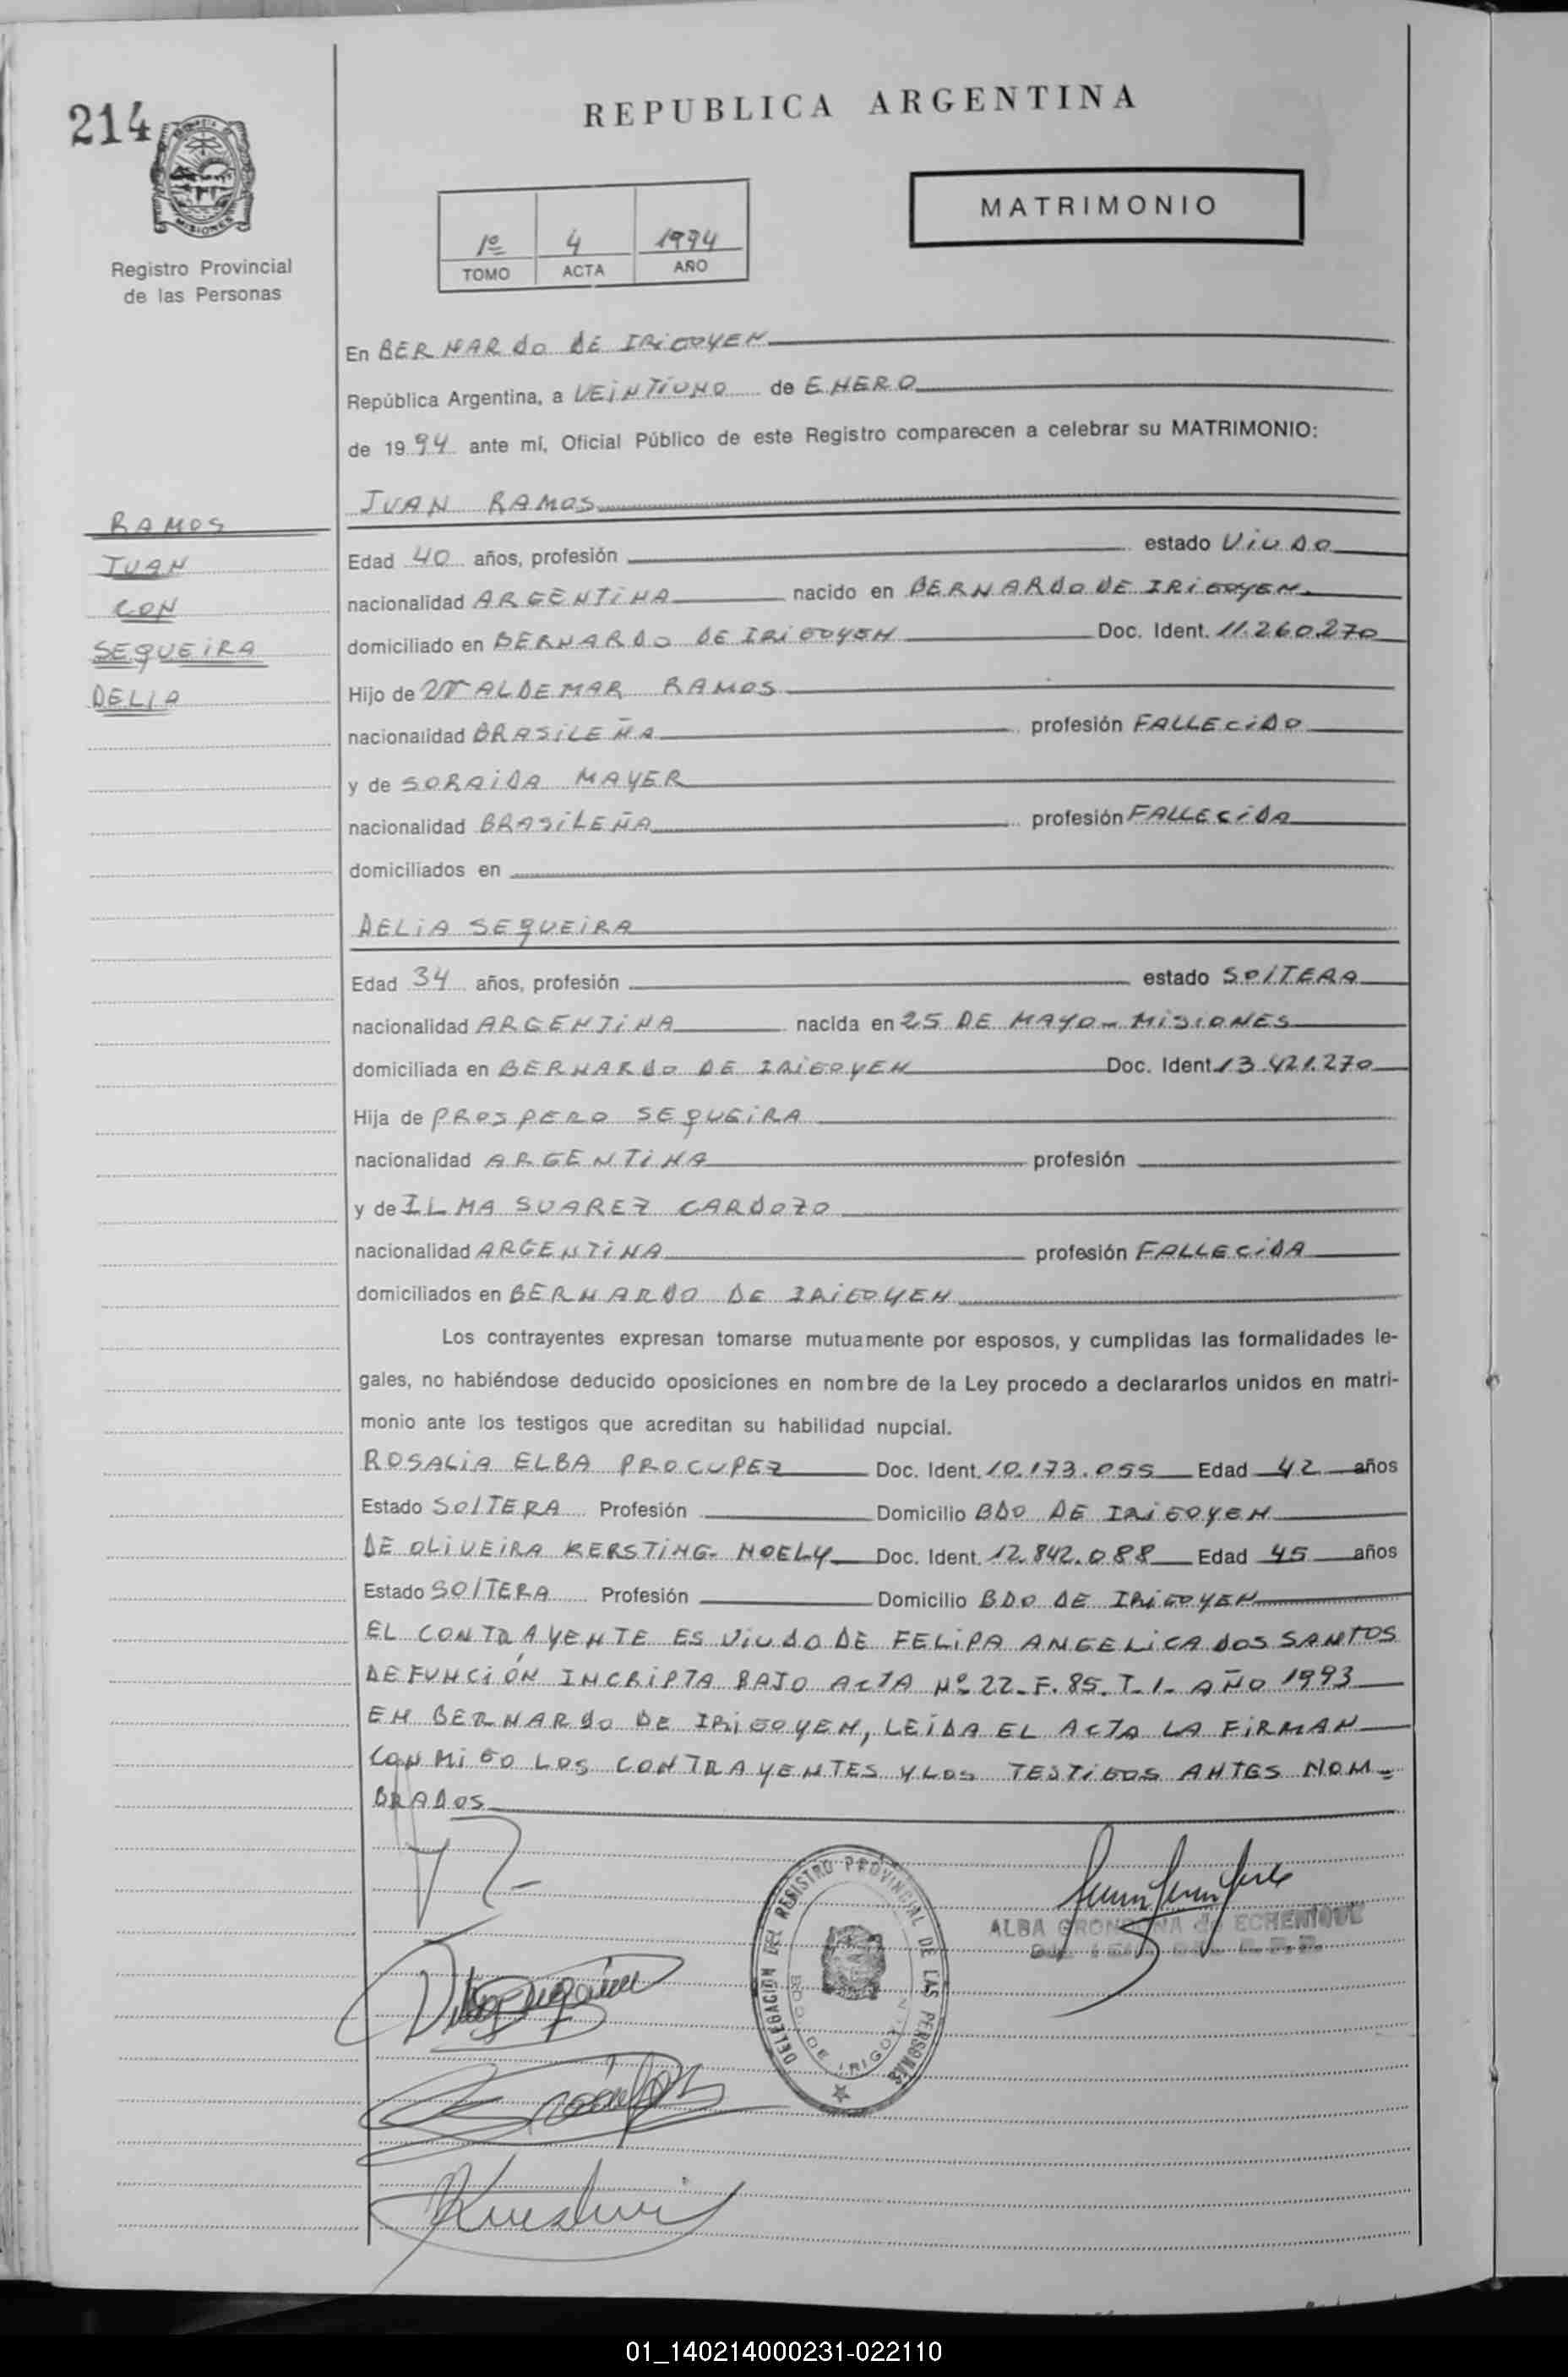 214
REPUBLICA ARGENTINA
MATRIMONIO
1º 4 1994
TOMO ACTA AÑO
MISIONES
Registro Provincial
de las Personas
En BERNARDO DE IRIGOYEN
República Argentina, a VEINTIUNO de ENERO
de 1994 ante mí, Oficial Público de este Registro comparecen a celebrar su MATRIMONIO:
RAMOS
JUAN
CON
SEQUEIRA
DELIA
JUAN RAMOS
Edad 40 años, profesión estado VIUDO
nacionalidad ARGENTINA nacido en BERNARDO DE IRIGOYEN
domiciliado en BERNARDO DE IRIGOYEN Doc. Ident. 11.260.270
Hijo de ALDEMAR RAMOS
nacionalidad BRASILEÑA profesión FALLECIDO
y de SORAIDA MAYER
nacionalidad BRASILEÑA profesión FALLECIDA
domiciliados en
DELIA SEQUEIRA
Edad 34 años, profesión estado SOLTERA
nacionalidad ARGENTINA nacida en 25 DE MAYO - MISIONES
domiciliada en BERNARDO DE IRIGOYEN Doc. Ident. 13.421.270
Hija de PROSPERO SEQUEIRA
nacionalidad ARGENTINA profesión
y de ILMA SUAREZ CARDOZO
nacionalidad ARGENTINA profesión FALLECIDA
domiciliados en BERNARDO DE IRIGOYEN
Los contrayentes expresan tomarse mutuamente por esposos, y cumplidas las formalidades le-
gales, no habiéndose deducido oposiciones en nombre de la Ley procedo a declararlos unidos en matri-
monio ante los testigos que acreditan su habilidad nupcial.
ROSALIA ELBA PROCUPEZ Doc. Ident. 10.173.055 Edad 42 años
Estado SOLTERA Profesión Domicilio BDO DE IRIGOYEN
DE OLIVEIRA KERSTING - NOELY Doc. Ident. 12.842.088 Edad 45 años
Estado SOLTERA Profesión Domicilio BDO DE IRIGOYEN
EL CONTRAYENTE ES VIUDO DE FELIPA ANGELICA DOS SANTOS
DEFUNCIÓN INCRIPTA BAJO ACTA Nº 22-F. 85. T-1- AÑO 1993
EN BERNARDO DE IRIGOYEN, LEIDA EL ACTA LA FIRMAN
CONMIGO LOS CONTRAYENTES Y LOS TESTIGOS ANTES NOM=
BRADOS
DELEGACION DEL REGISTRO PROVINCIAL DE LAS PERSONAS
BDO. DE IRIGOYEN
ALBA GRONDONA de ECHENIQUE
01_140214000231-022110